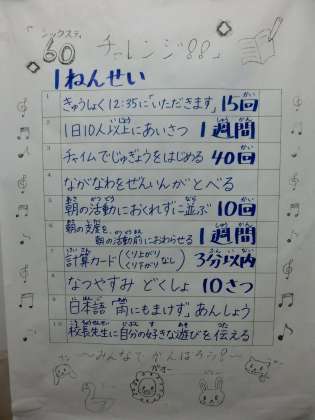 シックスティ
「60 チャレンジ!!」
1ねんせい
1 きゅうしょく12:35に「いただきます」15回
2 1日10人以上にあいさつ 1週間
3 チャイムでじゅぎょうをはじめる 40回
4 ながなわをぜんいんがとべる
5 朝の活動におくれずに並ぶ 10回
6 朝の支度を、
朝の活動前におわらせる 1週間
7 計算カード(くり上がり くり下がり なし) 3分以内
8 なつやすみ どくしょ 10さつ
9 日本語「雨にもまけず」あんしょう
10 校長先生に自分の好きな遊びを伝える
〜みんなで がんばろう!〜